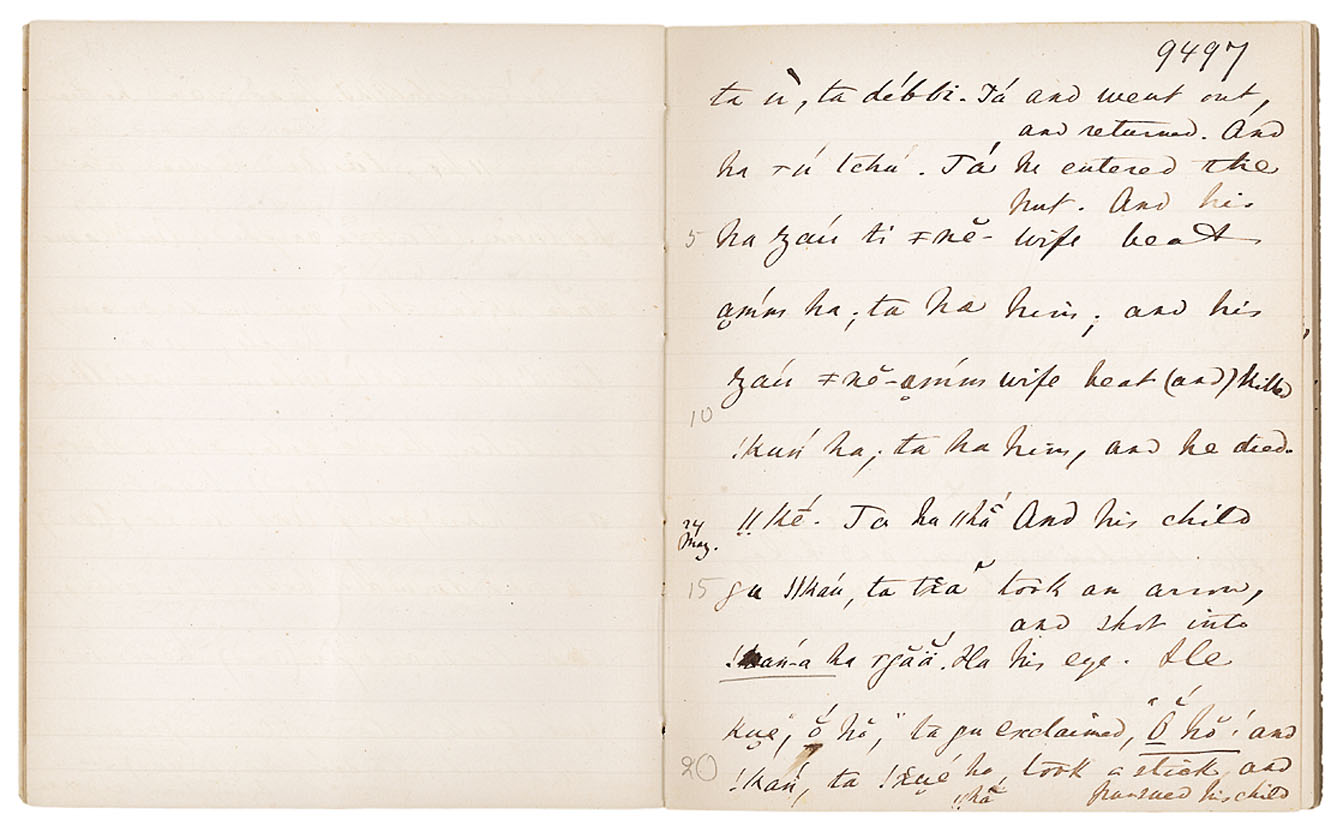 9497
ta ù, ta débbi. Tá and went out,
and returned. And
ha ⊤ú tchú. Tá he entered the
hut. And his
5 ha zaú ti ǂnĕ- wife beat
ạḿm ha; ta ha him; and his
zaú ǂnĕ-ạḿm wife beat (and) killed
10
!kuń ha; ta ha him, and he died.
24 May. ǁké. Ta ha ǁhắ And his child
15 gu ǁkaú, ta took an arrow,
and shot into
!kań-a ha. Ha his eye. He
"ŏ́ hŏ," ta gu exclaimed, "Ŏ́ hŏ! and
20 !kań, ta ha took a stick and
ǁhắ pursued his child